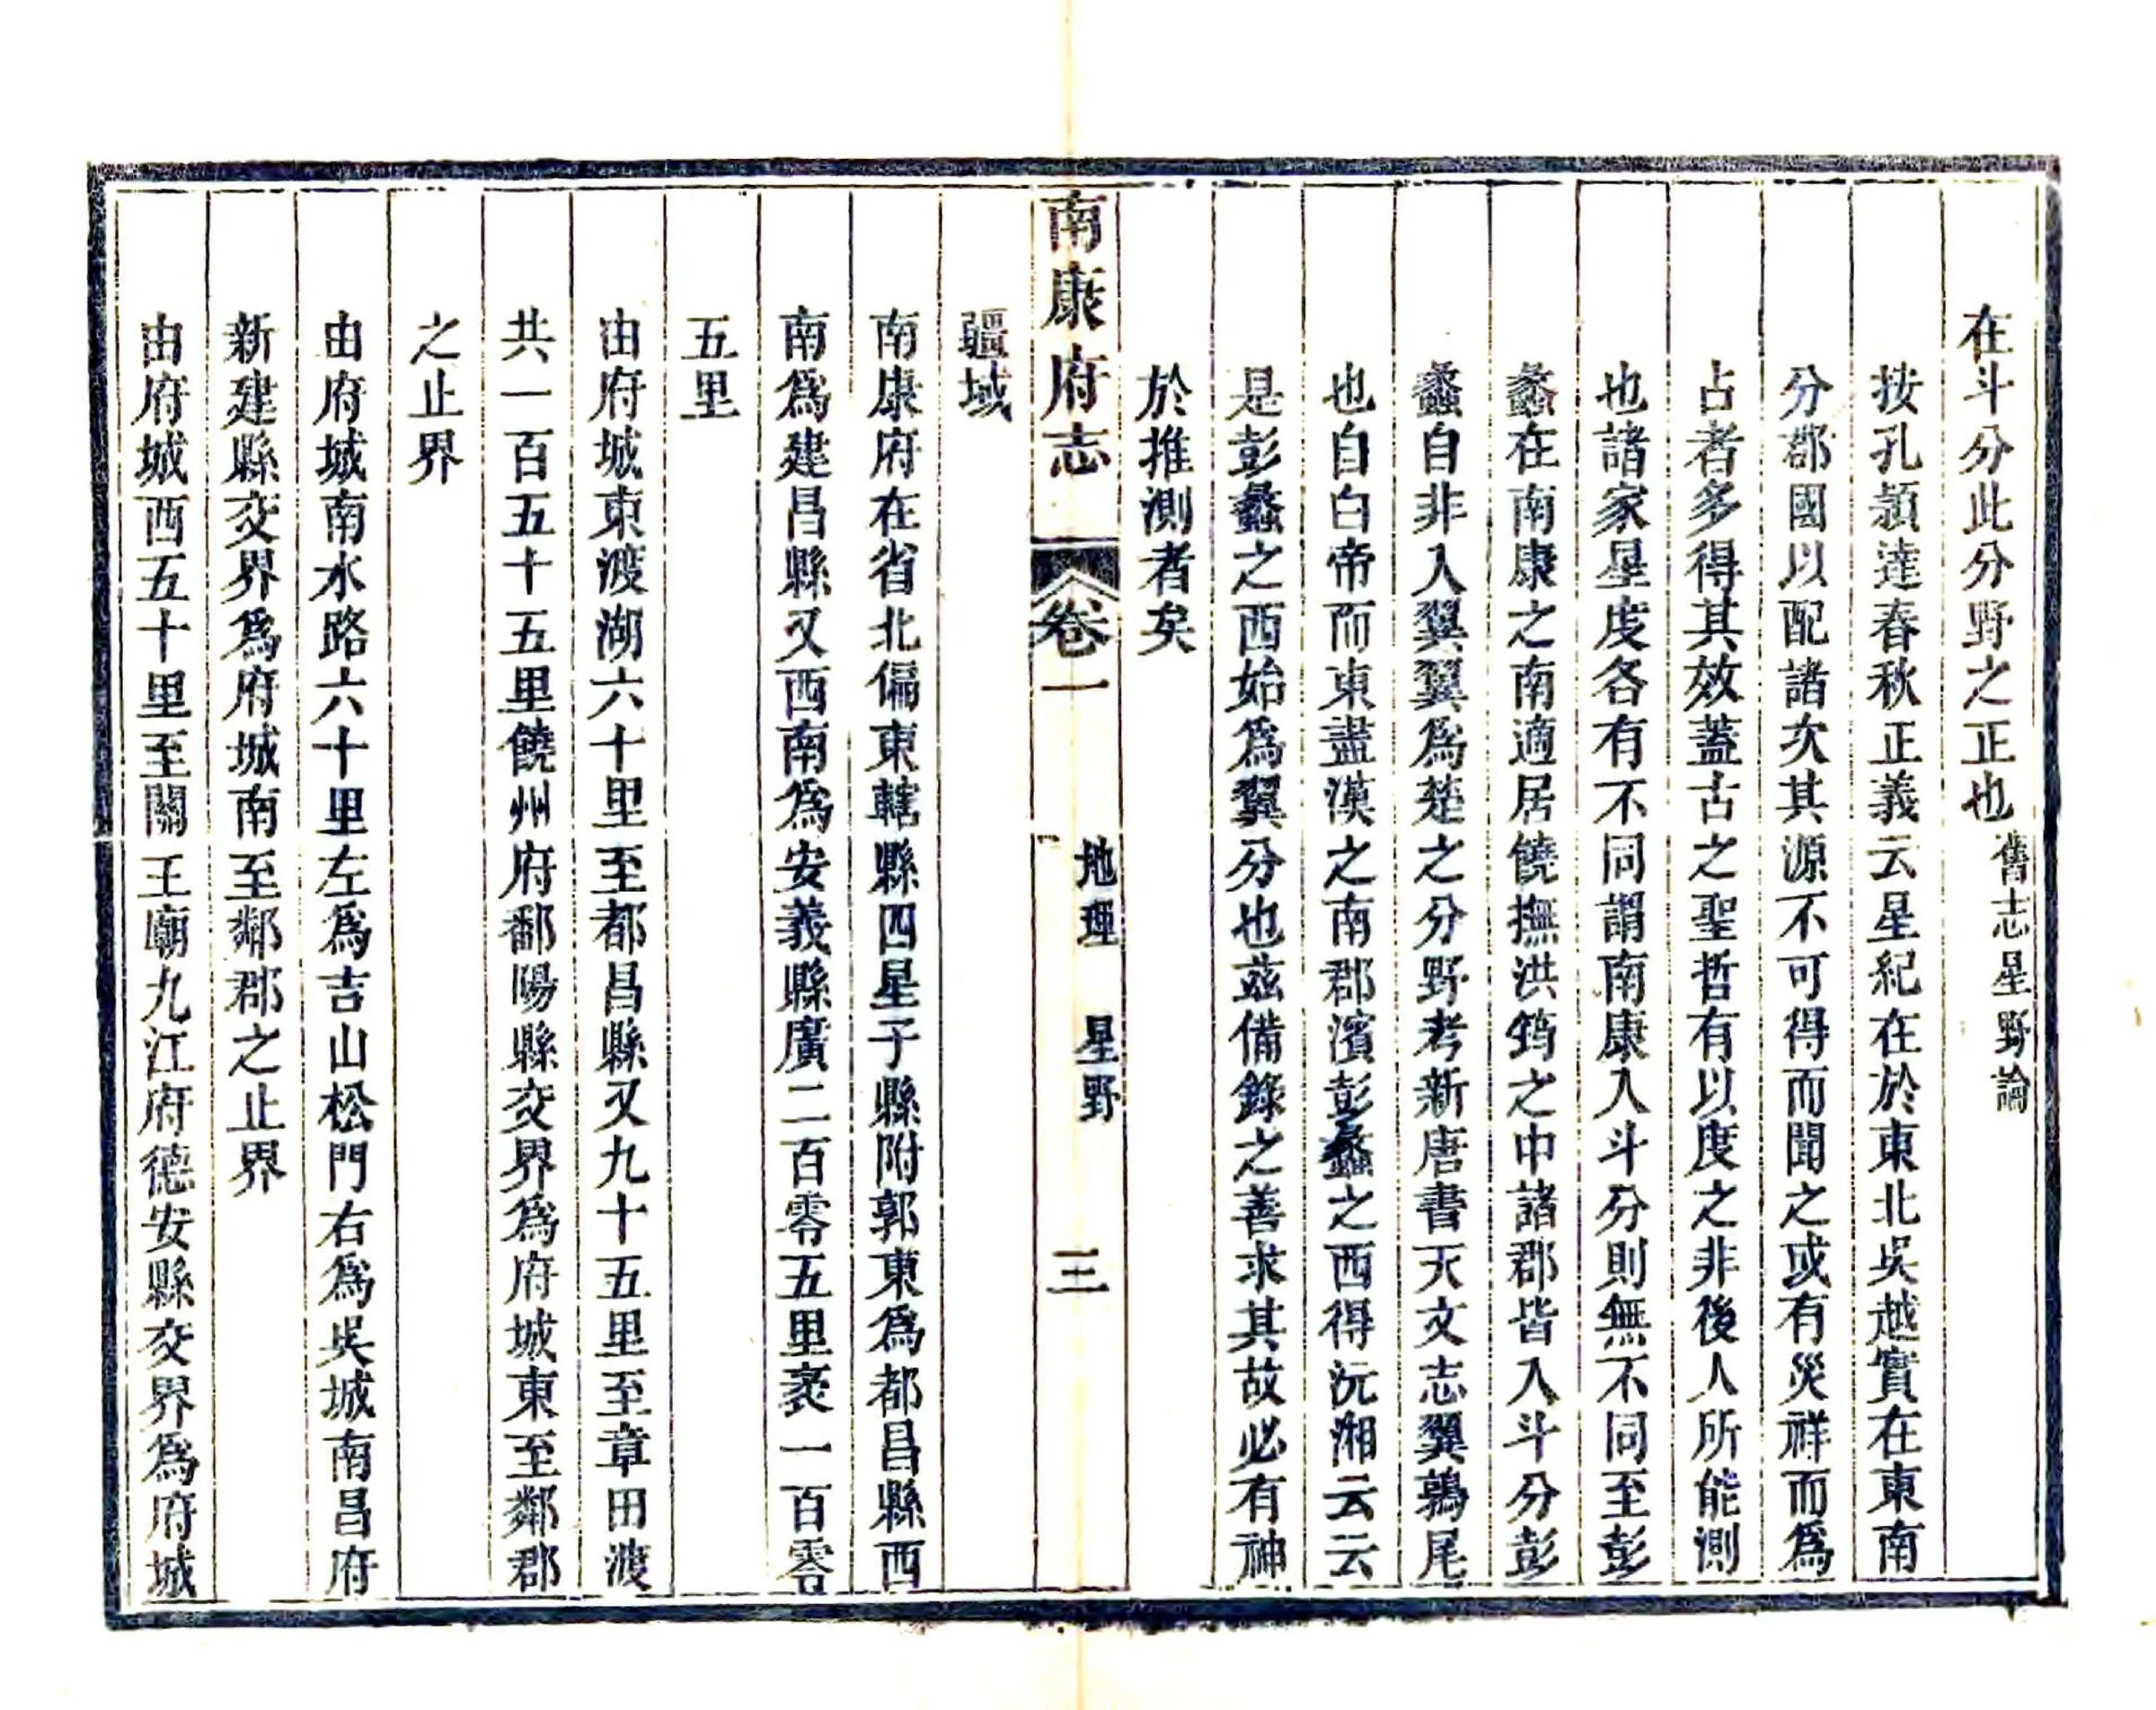 在斗分此分野之正也舊志星野論
按孔頴達春秋正義云星紀在於東北吳越實在東南
分郡國以配諸次其源不可得而聞之或有災祥而爲
占者多得其效蓋古之聖哲有以度之非後人所能測
也諸家星度各有不同謂南康入斗分則無不同至彭
蠡在南康之南適居饒撫洪筠之中諸郡皆入斗分彭
蠡自非入翼翼爲楚之分野考新唐書天文志翼鶉尾
也自白帝而東盡漢之南郡濱彭蠡之西得沅湘云云
是彭蠡之西始爲翼分也茲備錄之善求其故必有神
於推測者矣
南康府志 卷一 地理 星野 三
疆域
南康府在省北偏東轄縣四星子縣附郭東爲都昌縣西
南爲建昌縣又西南爲安義縣廣二百零五里袤一百零
五里
由府城東渡湖六十里至都昌縣又九十五里至章田渡
共一百五十五里饒州府鄱陽縣交界爲府城東至鄰郡
之止界
由府城南水路六十里左爲吉山松門右爲吳城南昌府
新建縣交界爲府城南至鄰郡之止界
由府城西五十里至關王廟九江府德安縣交界爲府城